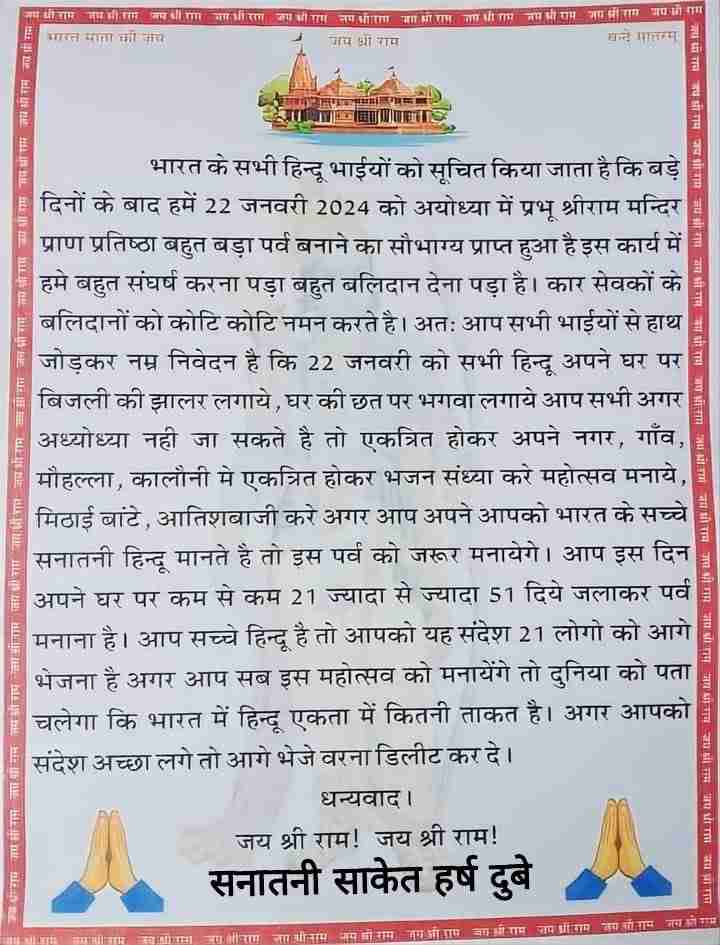 जय श्री राम जय श्री राम जय श्री राम जय श्री राम जय श्री राम जय श्री राम जय श्री राम जय श्री राम जय श्री राम जय श्री राम जय श्री राम
भारत माता की जय
जय श्री राम
वन्दे मातरम्
भारत के सभी हिन्दू भाईयों को सूचित किया जाता है कि बड़े
दिनों के बाद हमें 22 जनवरी 2024 को अयोध्या में प्रभू श्रीराम मन्दिर
प्राण प्रतिष्ठा बहुत बड़ा पर्व बनाने का सौभाग्य प्राप्त हुआ है इस कार्य में
हमे बहुत संघर्ष करना पड़ा बहुत बलिदान देना पड़ा है। कार सेवकों के
बलिदानों को कोटि कोटि नमन करते है। अतः आप सभी भाईयों से हाथ
जोड़कर नम्र निवेदन है कि 22 जनवरी को सभी हिन्दू अपने घर पर
बिजली की झालर लगाये, घर की छत पर भगवा लगाये आप सभी अगर
अध्योध्या नही जा सकते है तो एकत्रित होकर अपने नगर, गाँव,
मौहल्ला, कालौनी मे एकत्रित होकर भजन संध्या करे महोत्सव मनाये,
मिठाई बांटे, आतिशबाजी करे अगर आप अपने आपको भारत के सच्चे
सनातनी हिन्दू मानते है तो इस पर्व को जरूर मनायेगे। आप इस दिन
अपने घर पर कम से कम 21 ज्यादा से ज्यादा 51 दिये जलाकर पर्व
मनाना है। आप सच्चे हिन्दू है तो आपको यह संदेश 21 लोगो को आगे
भेजना है अगर आप सब इस महोत्सव को मनायेंगे तो दुनिया को पता
चलेगा कि भारत में हिन्दू एकता में कितनी ताकत है। अगर आपको
संदेश अच्छा लगे तो आगे भेजे वरना डिलीट कर दे।
धन्यवाद।
जय श्री राम! जय श्री राम!
सनातनी साकेत हर्ष दुबे